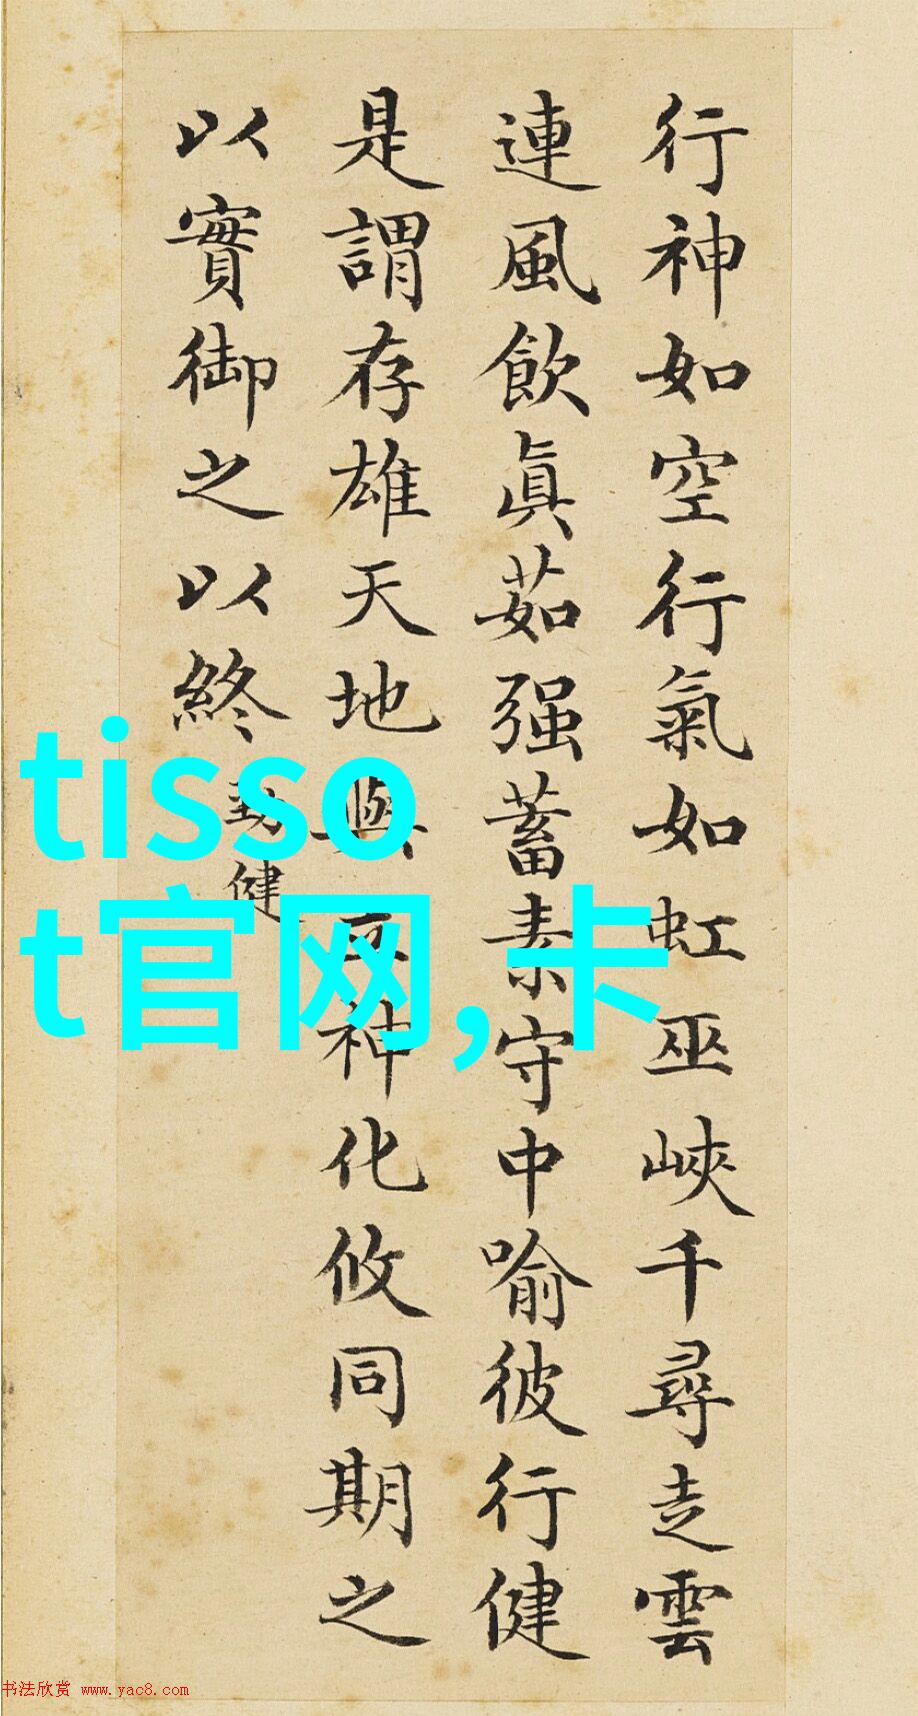 行神如空行氣如虹巫峽千尋走雲
連風飲眞茹强蓄素守中喻彼行健
是謂存雄天地與神化攸同期之
以實御之以終
勁健
tisso
t官网,卡
书法欣赏 www.yac8.com